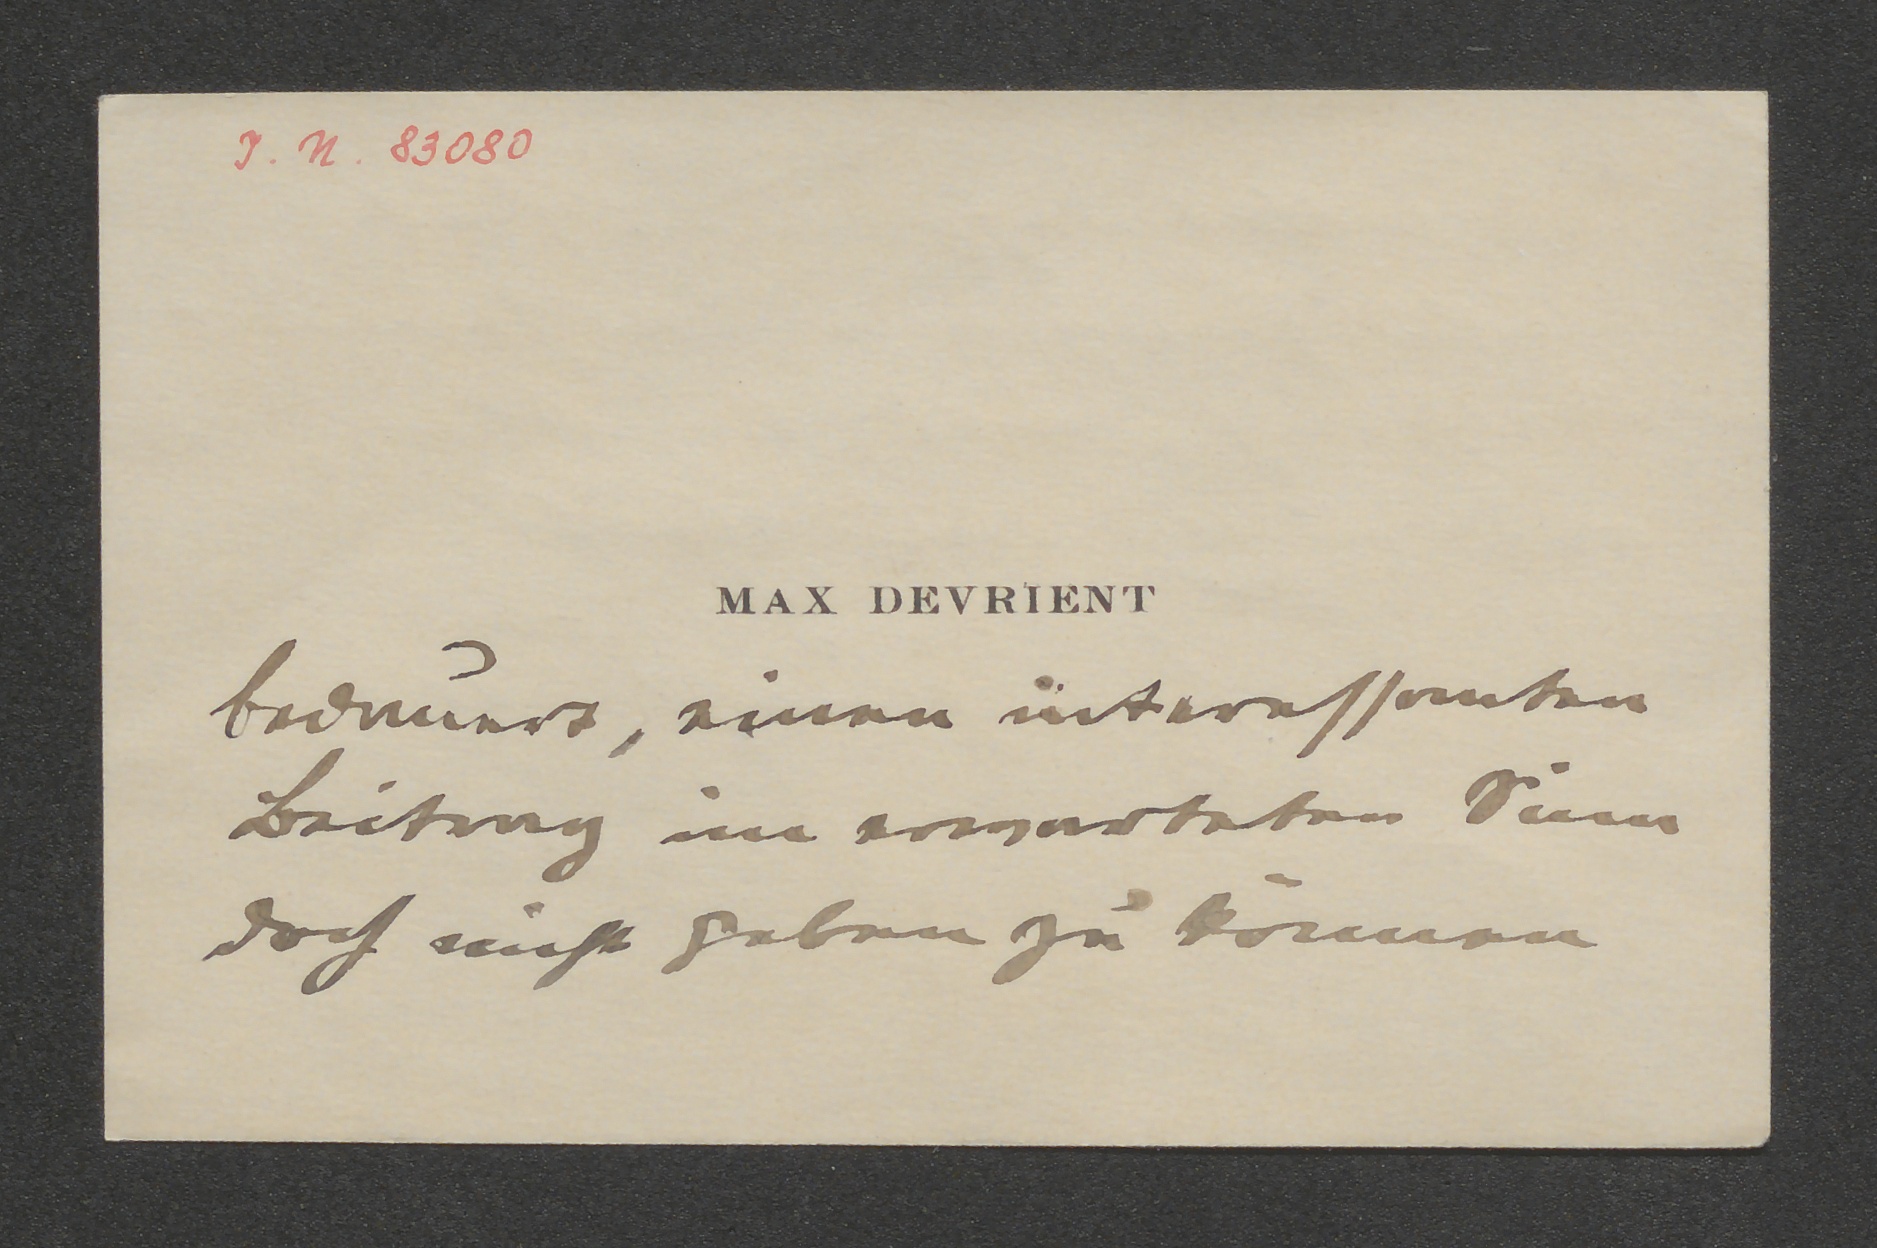 I. N. 83080
MAX DEVRIENT
bedauert, einen interessanten
Beitrag im erwarteten Sinn
doch nicht geben zu können